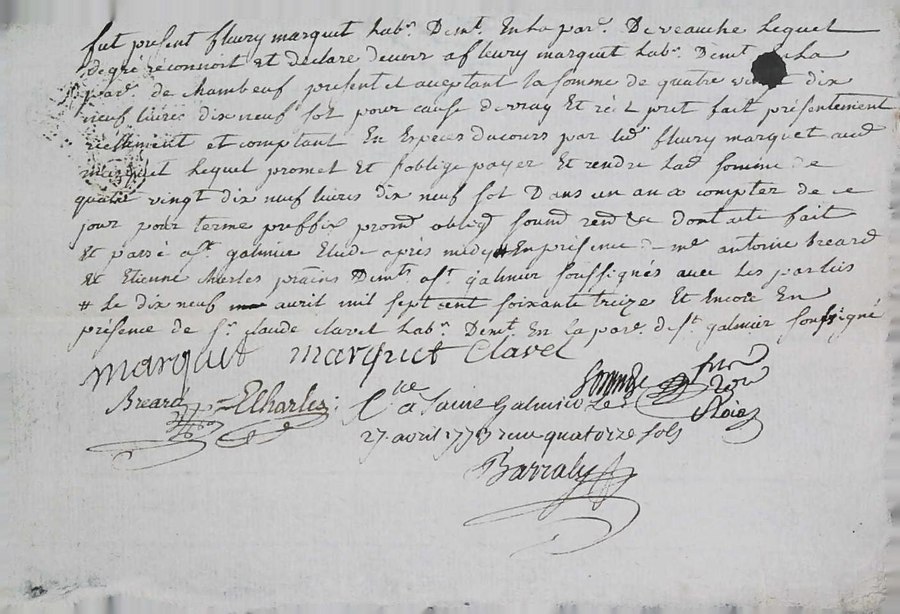 fut present fleury marquet lab.r Dem.t En La par.e De veauche Lequel
de gré reconnoit et declare devoir a fleury marquet lab.r Dem.t La
par.e de chambeuf present et aceptant la somme de quatre dix
neuf livres dix neuf sol pour cause de vray Et réel pret fait présentement
réellement et comptant En Especes du cours par led.t fleury marquet aud.
marquet Lequel promet Et s'oblige payer Et rendre Lad. somme de
quatre vingt dix neuf livres dix neuf sol Dans un an a compter de ce
jour pour terme preffix prom. oblig. soum. ren. & dont acte fait
& passé a S.t galmier Etude après midy # En présence de m.e antoine Breard
& Etienne Charles prains Dem.ts a S.t galmier soussignés avec les parties
# Le dix neuf avril mil sept cent soixante treize Et Encore En
présence de S.r claude clavel lab.r Dem.t En la par.e de S.t galmier soussigné
marquet marquet Clavel
Breard ECharles
C.lle a Saint Galmier Le
27. avril 1773 reçu quatorze sols
Barraly